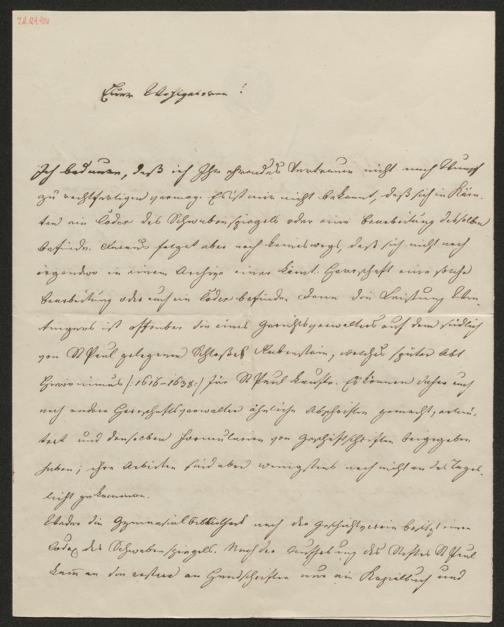 Euer Wohlgeboren!
Ich bedaure, daß ich Ihr ehrendes Vertrauen nicht nach Wunsch
zu rechtfertigen vermag. Es ist mir nicht bekannt, daß sich in Kärn-
ten ein Codex des Schwabenspiegels oder eine Bearbeitung desselben
befinde. Daraus folget aber noch keineswegs, daß sich nicht noch
irgendwo in einem Archive einer kärnt. Herrschaft eine solche
Bearbeitung oder auch ein Codex befinde. Denn die Leistung
ist offenbar die eines Gerichtsverwalters auf dem südlich
von St Paul gelegenen Schloße Rabenstein, welches später Abt
Hieronimus /:1616-1638:/ für St Paul kaufte. Es können daher auch
noch andere Herrschaftsverwalter ähnliche Abschriften gemacht,
und denselben Formularien von Geschäftsschriften beygegeben
haben; ihre Arbeiten sind aber wenigstens noch nicht an das Tages-
licht gekommen.
Weder die Gymnasialbibliothek noch der Geschichtverein besitzt einen
Codex des Schwabenspiegels. Nach der Aufhebung des Stiftes St Paul
kam an die erstere an Handschriften nur ein Kopialbuch und